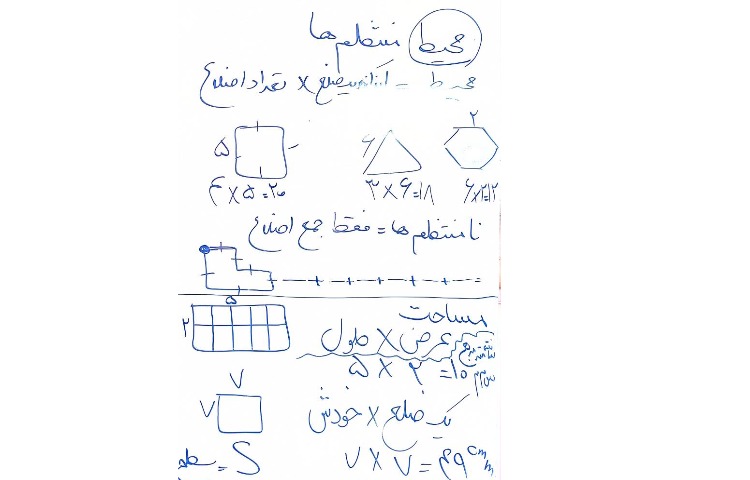 محیط منتظم ها
محیط = اندازه یک ضلع × تعداد اضلاع
۵ ۶ ۲
۴ × ۵ = ۲۰ ۳ × ۶ = ۱۸ ۶ × ۲ = ۱۲
نامنتظم ها = فقط جمع اضلاع
- + - + - + - + - + - =
مساحت
۵
۲
عرض × طول
۵ × ۲ = ۱۰
۷
۷
یک ضلع × خودش
۷ × ۷ = ۴۹ cm m
S =